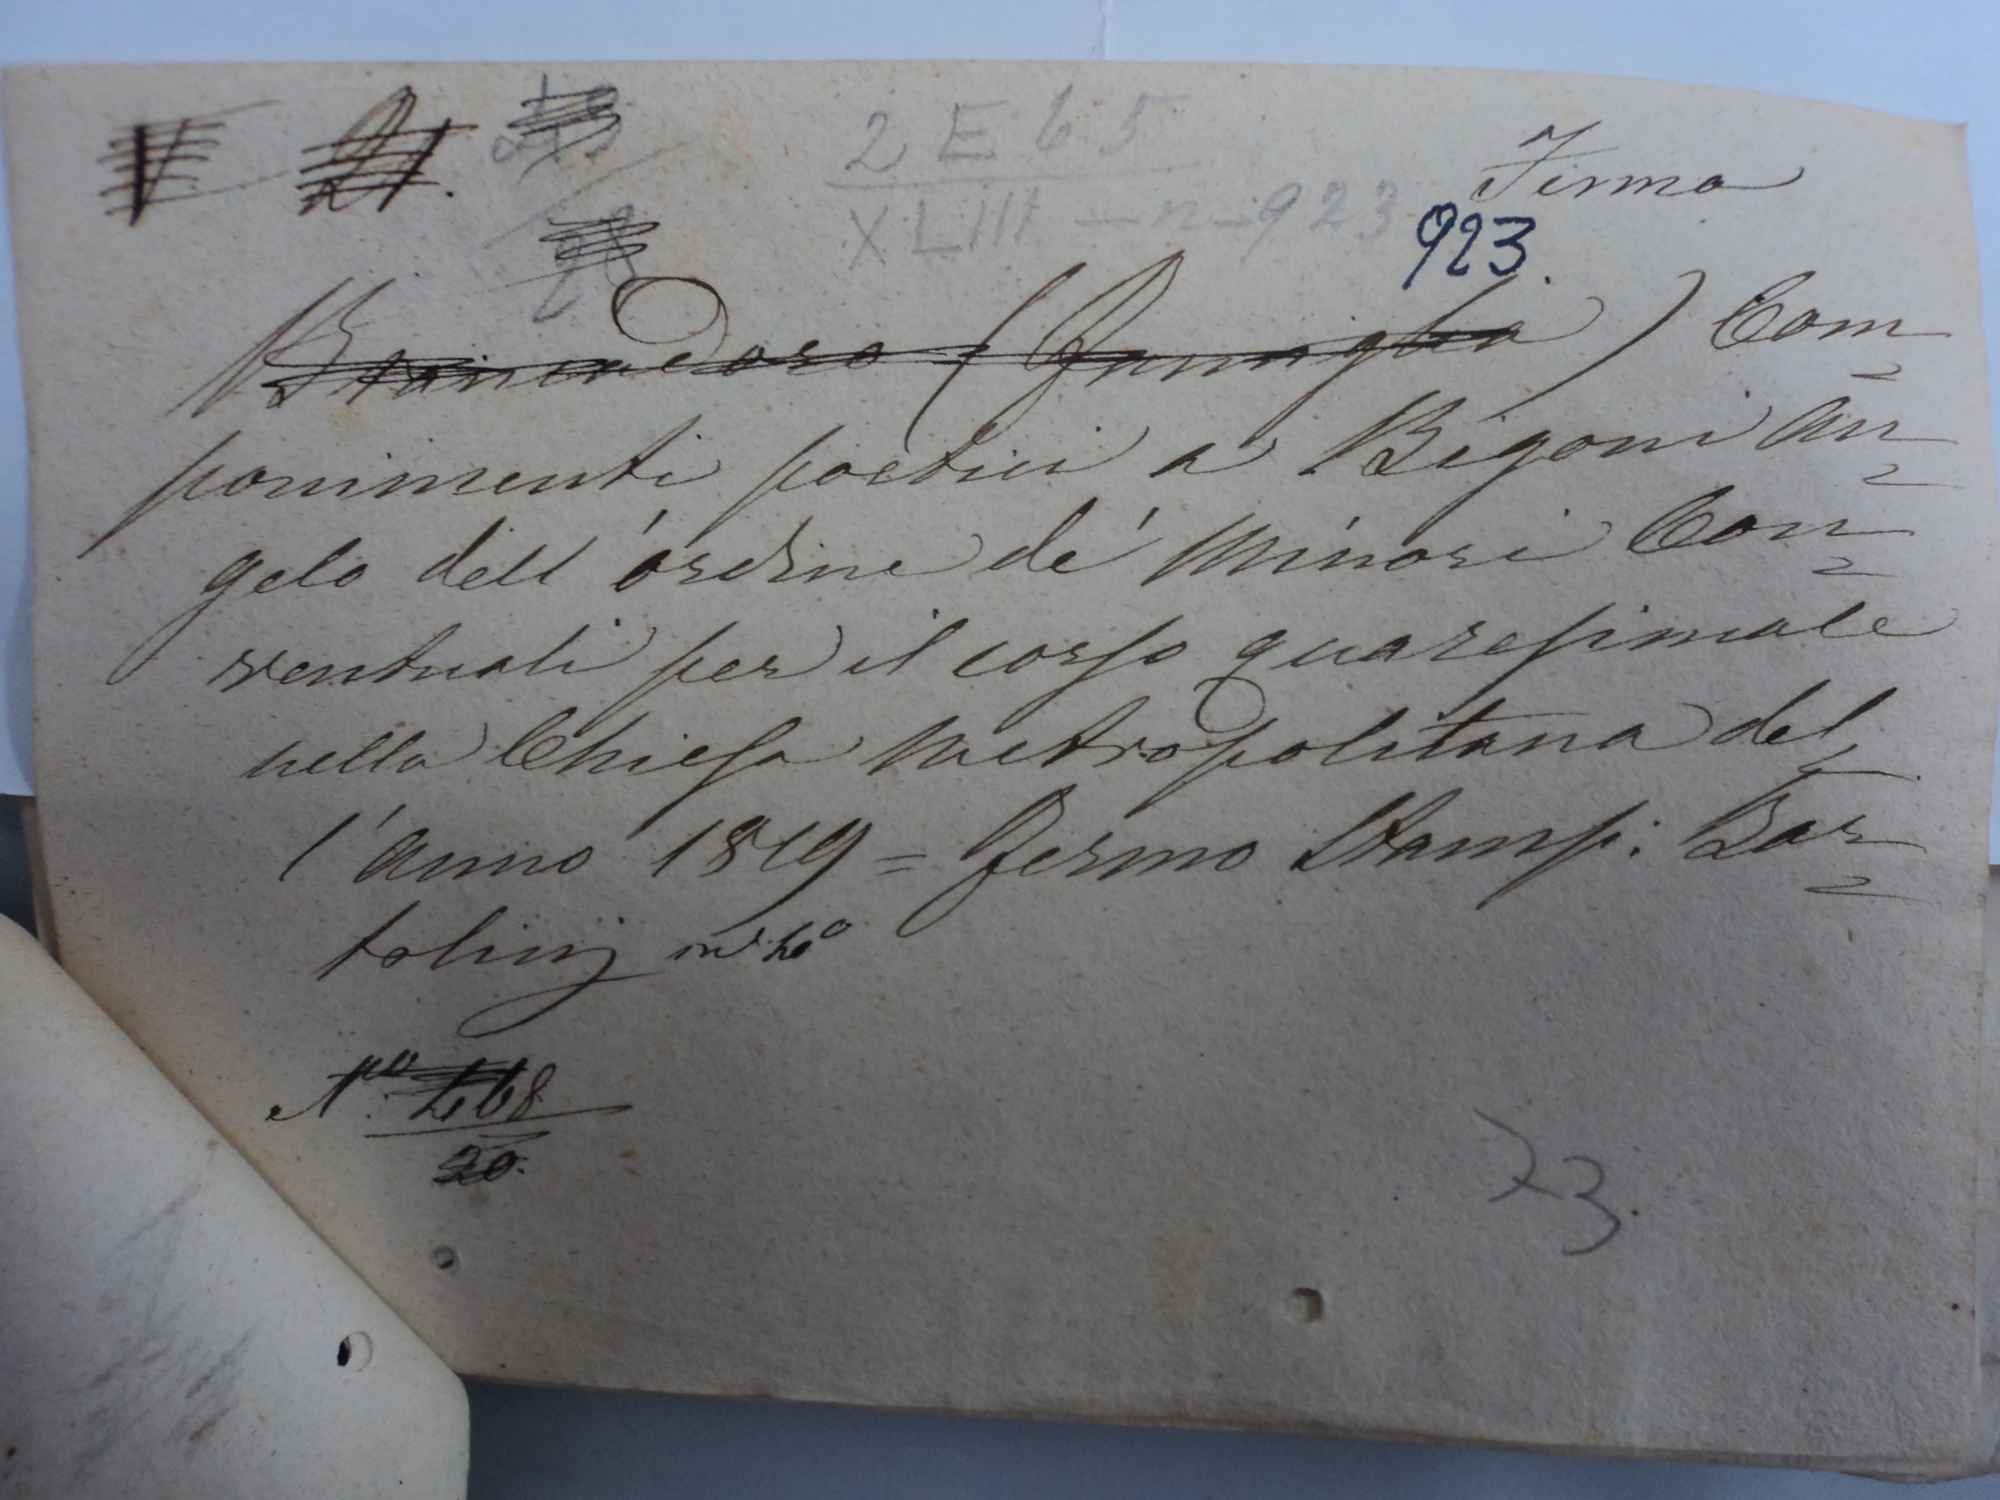 V 21.
2 E 65
XLIII - n - 923
Firma
923.
Brancadoro (Famiglia) Com=
ponimenti poetici a Bigoni An=
gelo dell'ordine de' Minori Con=
ventuali per il corso quaresimale
nella Chiesa Metropolitana del=
l'anno 1819 = Fermo Stamp: Bar=
tolinj in 4o
No. 468
20.
23.